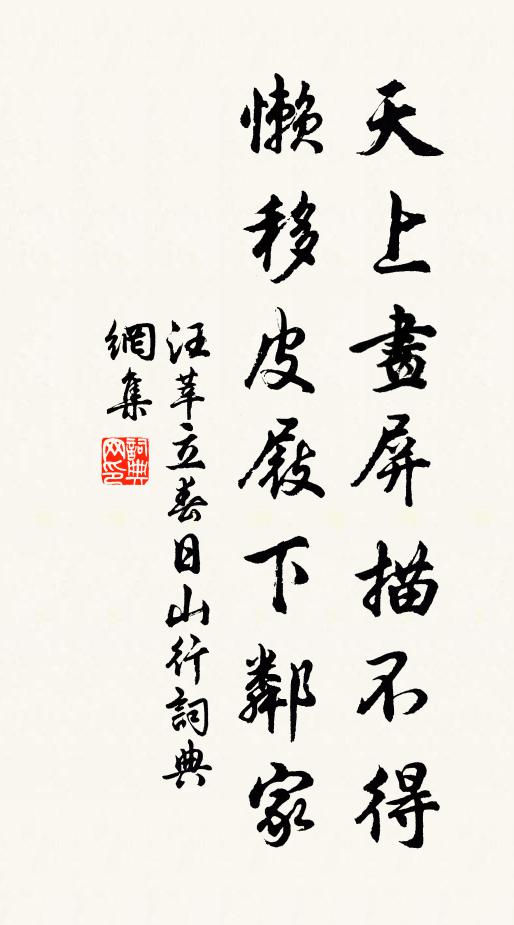 天上畫屏描不得
懶移皮屐下鄰家
汪莘立春日山行詞典
網集
詞典
网印